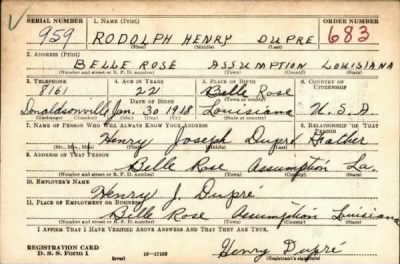 SERIAL NUMBER 1. NAME (Print) ORDER NUMBER
959 RODOLPH HENRY DUPRE 683
(First) (Middle) (Last)
2. ADDRESS (Print)
BELLE ROSE ASSUMPTION LOUISIANA
(Number and street or R. F. D. number) (Town) (County) (State)
3. TELEPHONE 4. AGE IN YEARS 5. PLACE OF BIRTH 6. COUNTRY OF CITIZENSHIP
8161 22 Belle Rose
DATE OF BIRTH (Town or county)
Donaldsonville Jan. 30 1918 Louisiana U.S.A.
(Exchange) (Number) (Mo.) (Day) (Yr.) (State or country)
7. NAME OF PERSON WHO WILL ALWAYS KNOW YOUR ADDRESS 8. RELATIONSHIP OF THAT PERSON
Henry Joseph Dupré Father
(Mr., Mrs., Miss) (First) (Middle) (Last)
9. ADDRESS OF THAT PERSON
Belle Rose Assumption La.
(Number and street or R. F. D. number) (Town) (County) (State)
10. EMPLOYER'S NAME
Henry J. Dupré
11. PLACE OF EMPLOYMENT OR BUSINESS
Belle Rose Assumption Louisiana
(Number and street or R. F. D. number) (Town) (County) (State)
I AFFIRM THAT I HAVE VERIFIED ABOVE ANSWERS AND THAT THEY ARE TRUE.
REGISTRATION CARD
D. S. S. Form 1 (over) 16-17105 Henry Dupré
(Registrant's signature)